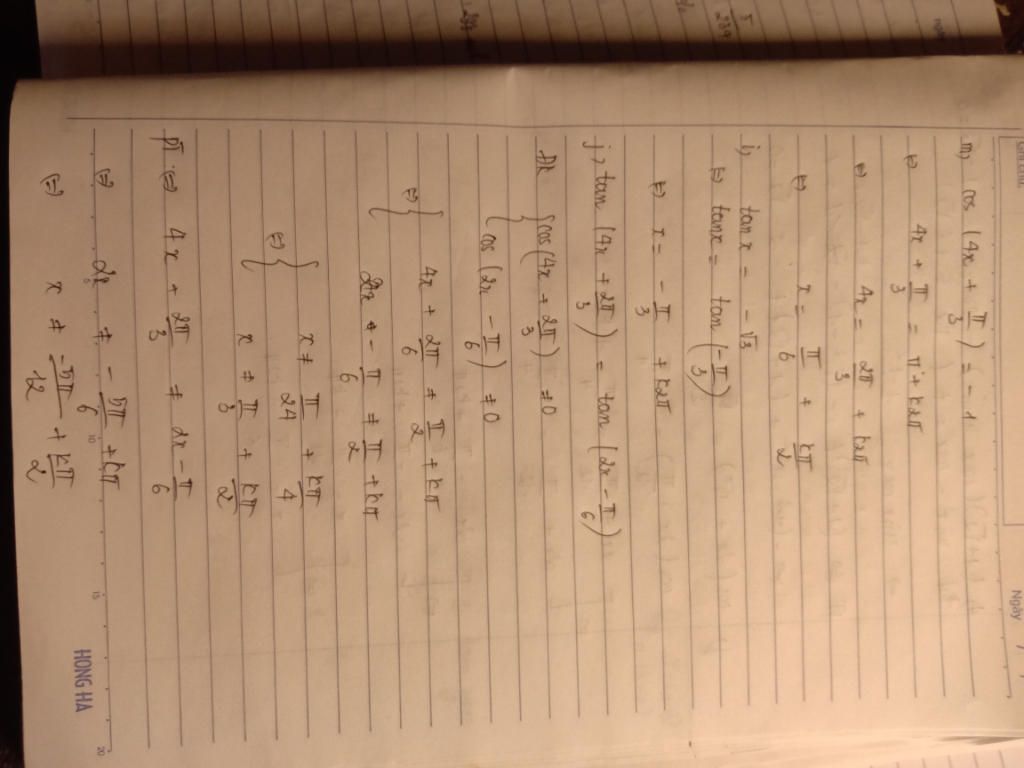 Ngày
m, cos (4x + π/3) = - 1
⇔ 4x + π/3 = π + k2π
⇔ 4x = 2π/3 + k2π
⇔ x = π/6 + kπ/2
i, tan x = - √3
⇔ tanx = tan (-π/3)
⇔ x = - π/3 + k2π
j, tan (4x + 2π/3) = tan (2x - π/6)
ĐK { cos (4x + 2π/3) ≠ 0
cos (2x - π/6) ≠ 0
⇔ { 4x + 2π/6 ≠ π/2 + kπ
2x - π/6 ≠ π/2 + kπ
⇔ { x ≠ π/24 + kπ/4
x ≠ π/3 + kπ/2
PT ⇔ 4x + 2π/3 ≠ 2x - π/6
⇔ 2x ≠ - 5π/6 + kπ
⇔ x ≠ -5π/12 + kπ/2
5 10 15 20
HONG HA